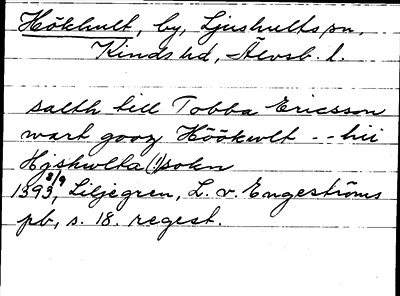 Hökhult, by, Ljushults sn,
Kinds hd, Älvsb. l.
saath till Tobba Ericsson
wart gooz Höökwlt -- hii
Hyskwlta (!) sokn
1393 8/9, Liljegren, L. v. Engeströms
pb, s. 18. regest.